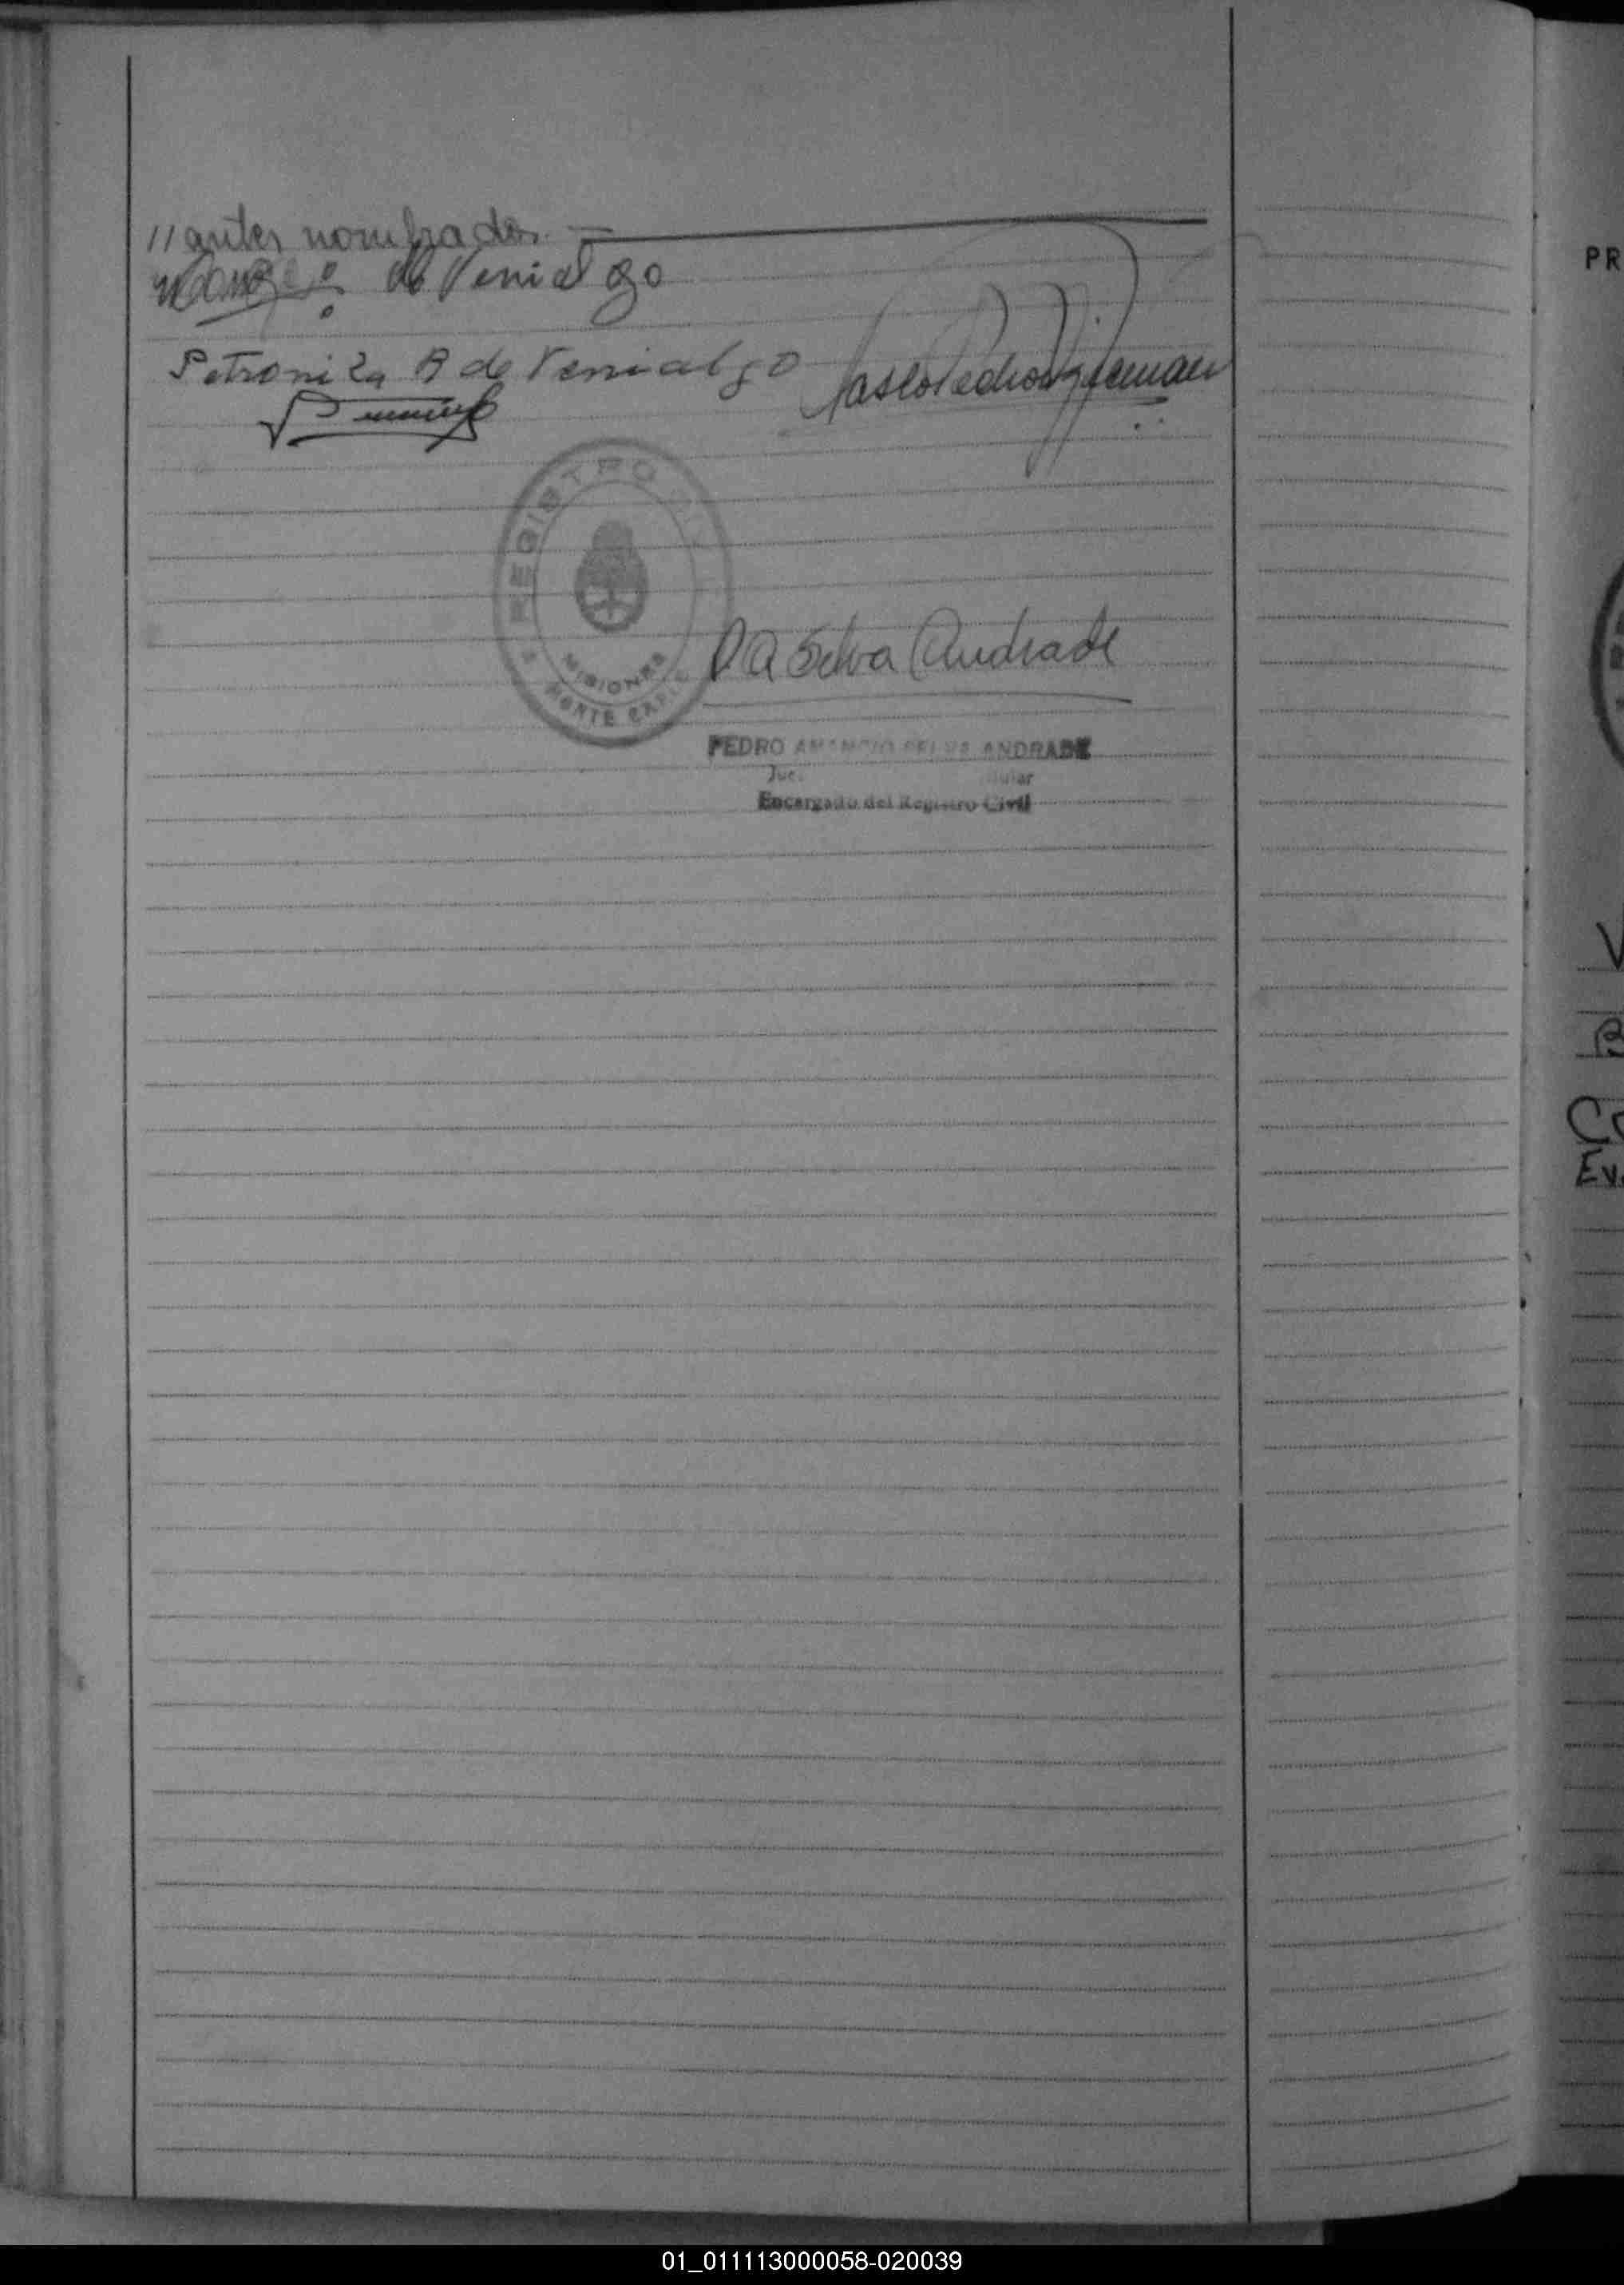 // antes nombrados. —
de Venialgo
Petronila A de Venialgo
REGISTRO
MISIONES
MONTE CARLO
PA Selva Andrade
PEDRO AMANCIO SELVA ANDRADE
Juez Titular
Encargado del Registro Civil
PR
01_011113000058-020039